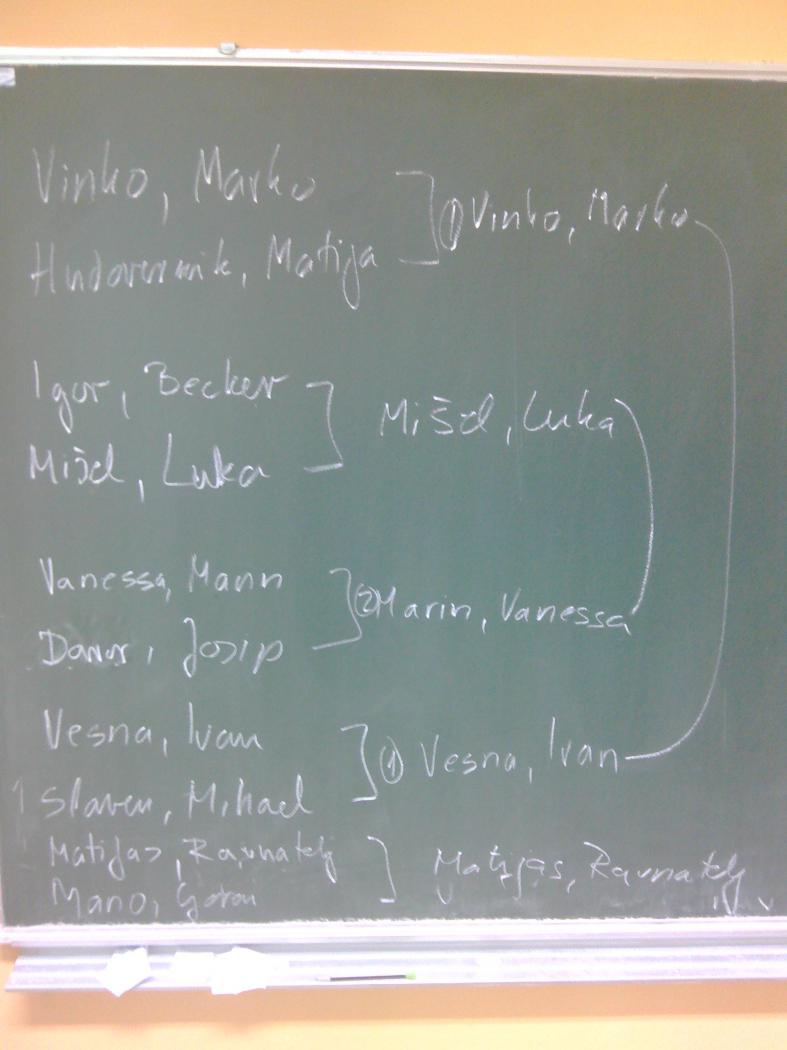 Vinko, Marko
Hudovernik, Matija
① Vinko, Marko
Igor, Becker
Mišel, Luka
Mišel, Luka
Vanessa, Marin
Davor, Josip
② Marin, Vanessa
Vesna, Ivan
1 Slaven, Mihael
① Vesna, Ivan
Matijas, Ravnatelj
Mano, Goran
Matijas, Ravnatelj